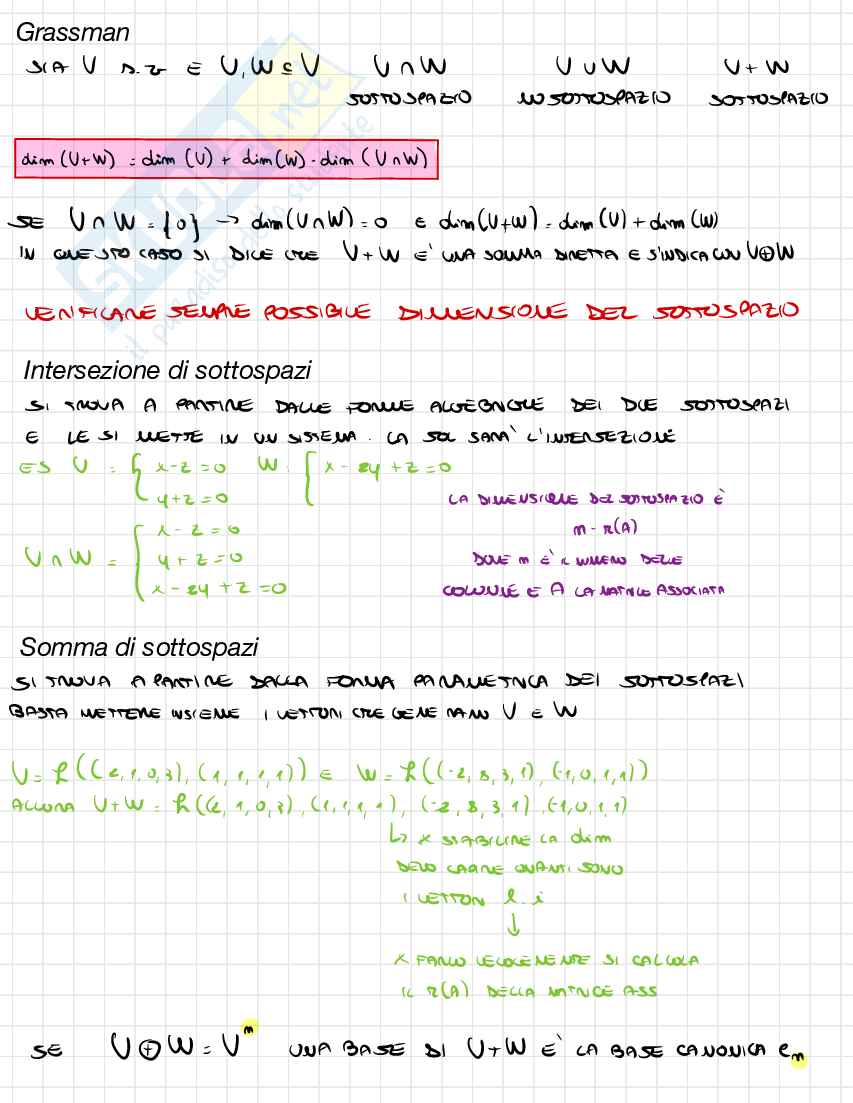 Grassman
SIA V s.v E U,W ⊆ V U ∩ W U ∪ W U + W
SOTTOSPAZIO NO SOTTOSPAZIO SOTTOSPAZIO
dim (U+W) = dim (U) + dim(W) - dim (U ∩ W)
SE U ∩ W = {0} → dim(U ∩ W) = 0 E dim(U+W) = dim(U) + dim(W)
IN QUESTO CASO SI DICE CHE U + W E' UNA SOMMA DIRETTA E S'INDICA CON U⊕W
VERIFICARE SEMPRE POSSIBILE DIMENSIONE DEL SOTTOSPAZIO
Intersezione di sottospazi
SI TROVA A PARTIRE DALLE FORME ALGEBRICHE DEI DUE SOTTOSPAZI
E LE SI METTE IN UN SISTEMA. LA SOL SARA' L'INTERSEZIONE
ES U = { x - z = 0 W: { x - 2y + z = 0
y + z = 0
LA DIMENSIONE DEL SOTTOSPAZIO È
x - z = 0
n - r(A)
U ∩ W = { y + z = 0
DOVE n E' IL NUMERO DELLE
x - 2y + z = 0
COLONNE E A LA MATRICE ASSOCIATA
Somma di sottospazi
SI TROVA A PARTIRE DALLA FORMA PARAMETRICA DEI SOTTOSPAZI
BASTA METTERE INSIEME I VETTORI CHE GENERANO U E W
U = L((2,1,0,3), (1,1,1,1)) E W = L((-2,8,3,1), (-1,0,1,1))
ALLORA U+W = L((2,1,0,3), (1,1,1,1), (-2,8,3,1), (-1,0,1,1)
↳ x STABILIRE LA dim
DEVO CAPIRE QUANTI SONO
I VETTORI l.i
↓
x FARLO VELOCEMENTE SI CALCOLA
IL r(A) DELLA MATRICE ASS
SE U ⊕ W = V^n UNA BASE DI U+W E' LA BASE CANONICA e_n
SKUOLA.net
il paradiso dello studente